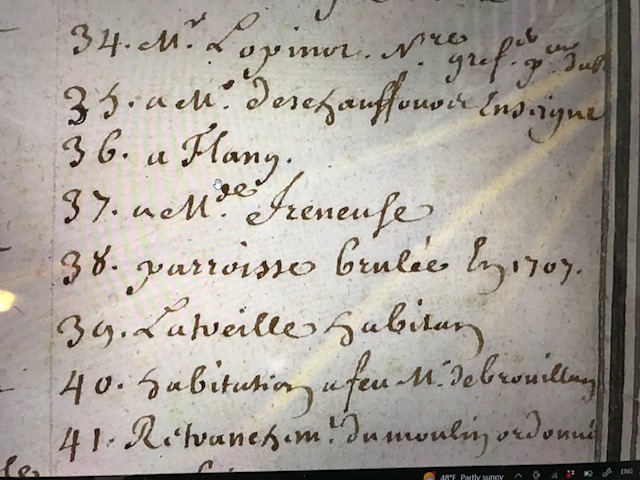 34. Mr. Lopinot. Nre. gref.
35. a Mr. deschauffour Enseigne
36. a Flany.
37. a Mde. Freneuse
38. parroisse brulée En 1707.
39. Latreille habitan
40. habitation a feu Mr. debrouillan
41. Retranchemt. du moulin ordonné
48°F Partly sunny ENG